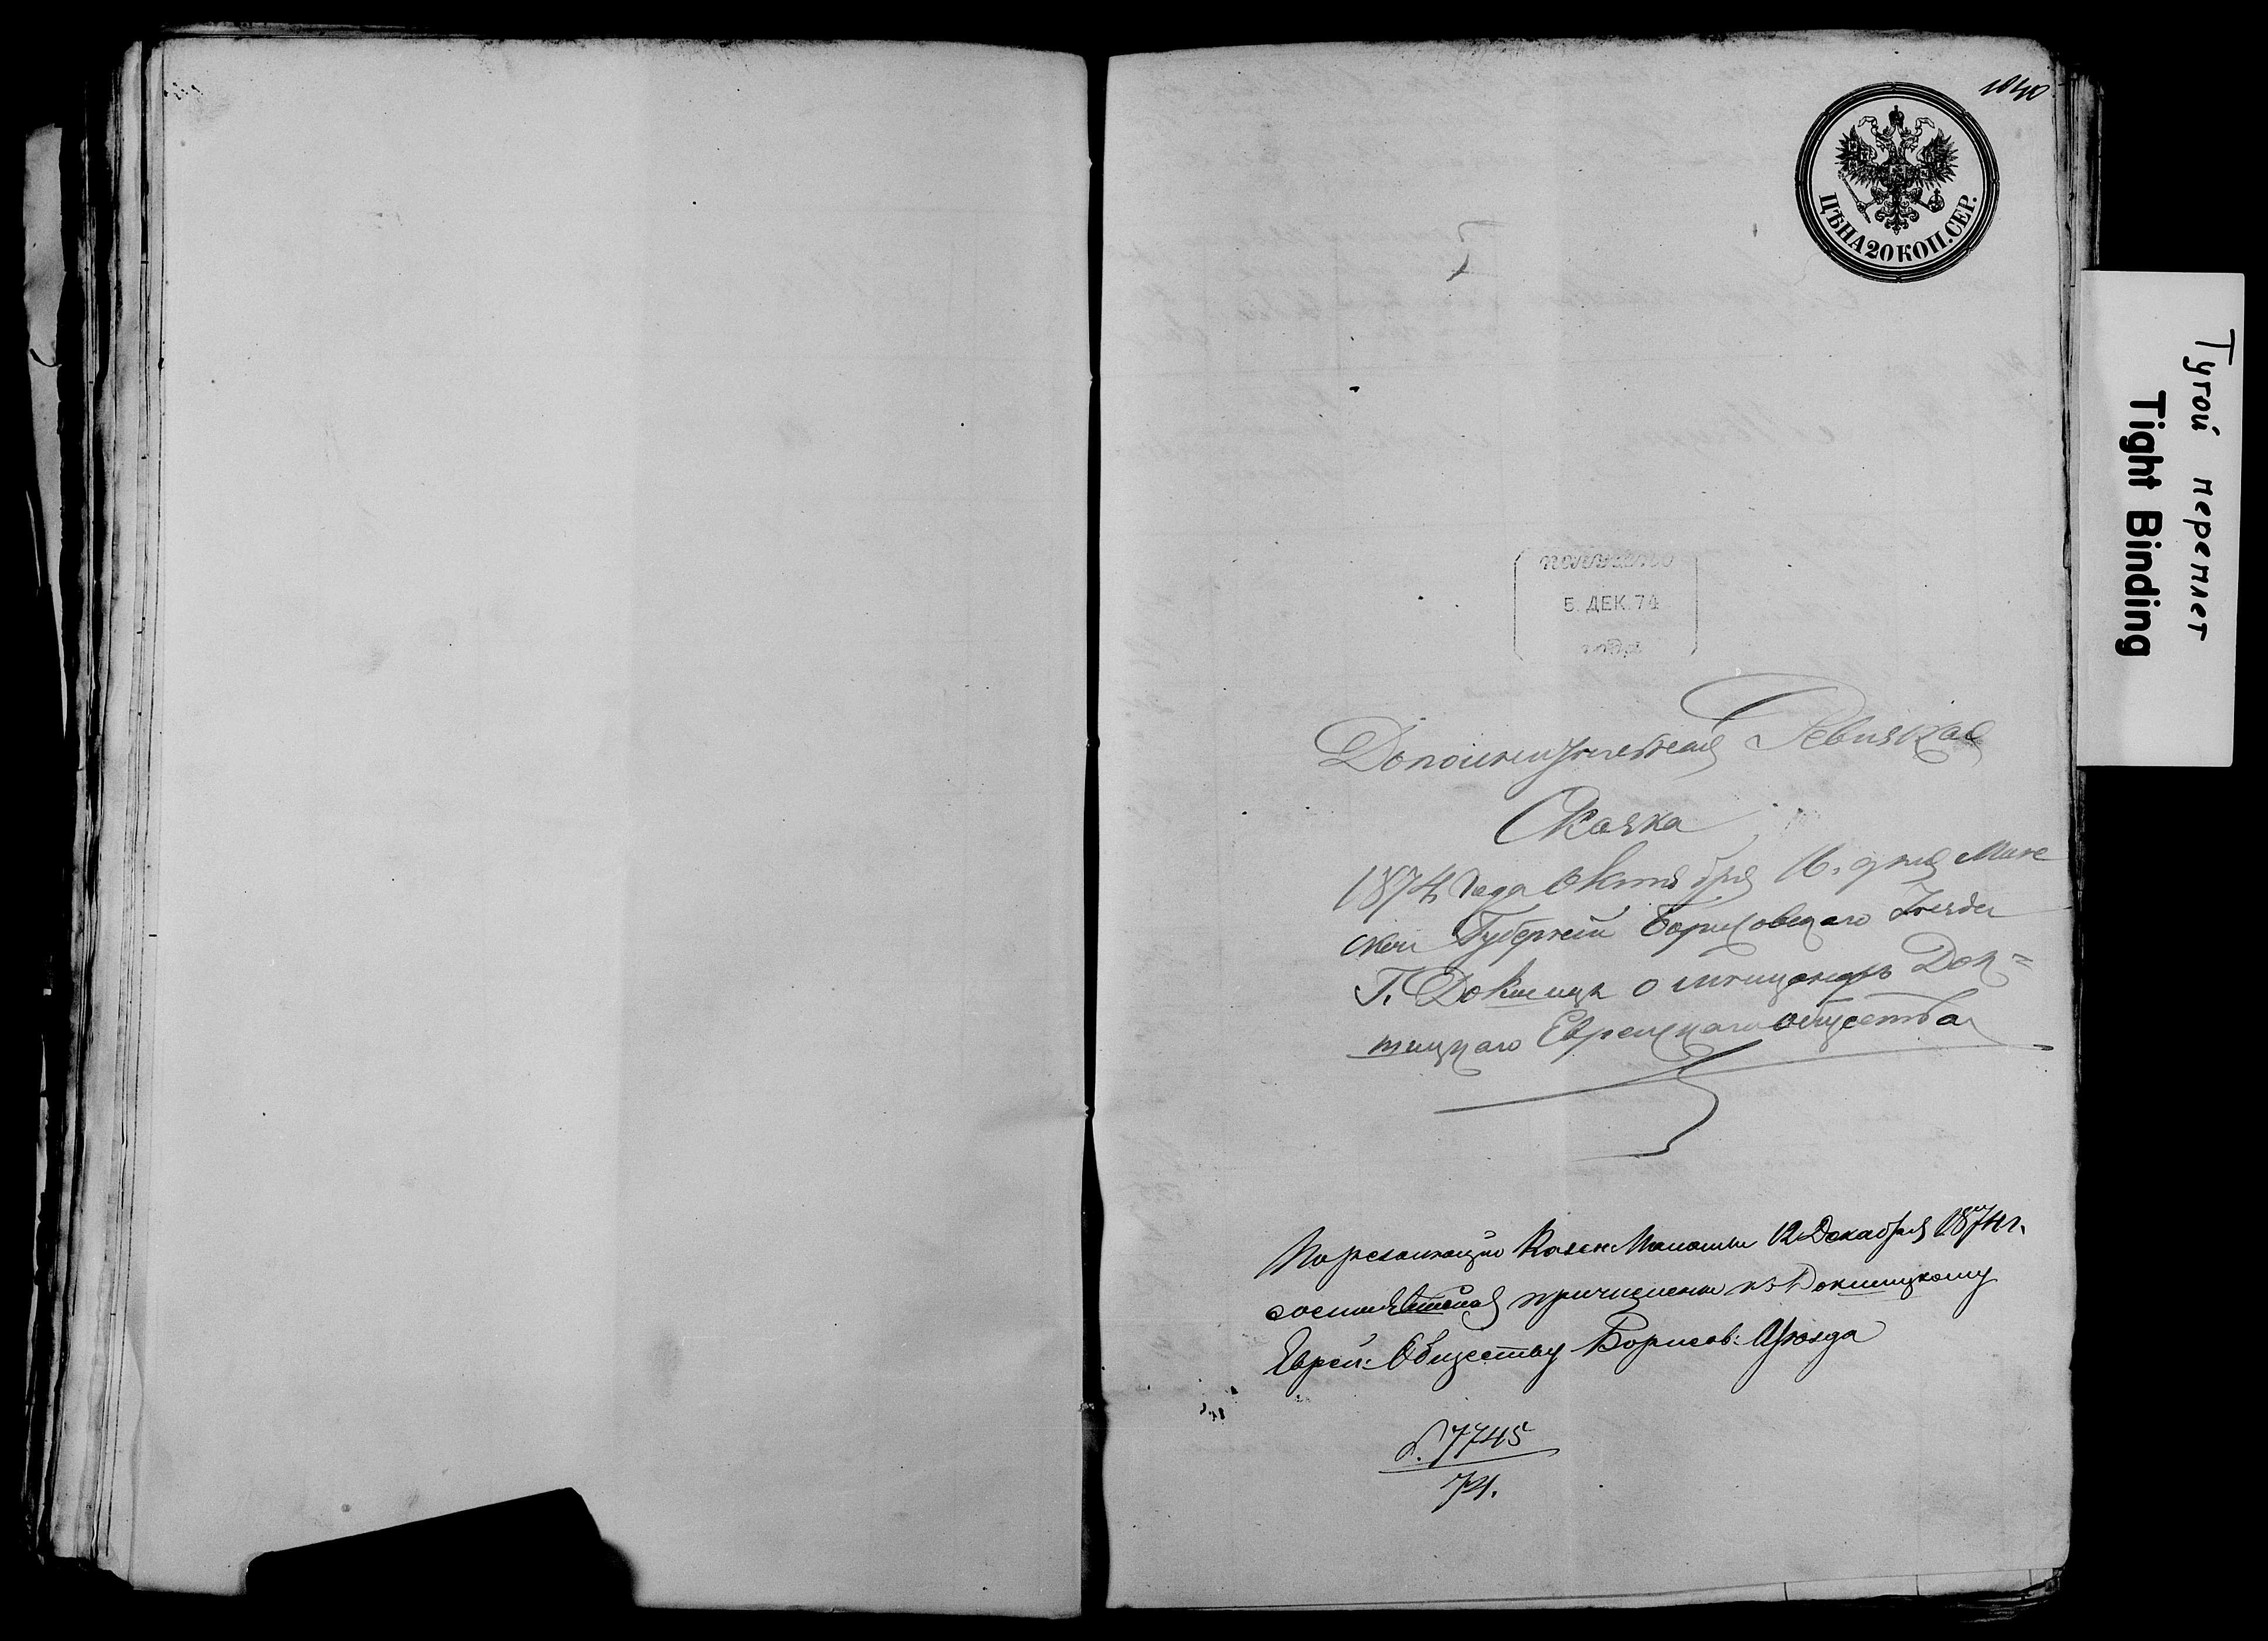 1040
ЦѢНА 20 КОП. СЕР.
Тугой переплет
Tight Binding
ПОЛУЧЕНО
5. ДЕК. 74
Дополнительная Ревизкая
Сказка
1874 Года Октября 16. дня Минс
кои Губерніи Борисовскаго Уезда
Г. Докшицъ о мещанахъ Док=
шицкаго Еврейскаго общества
По резолюціи Казен: Палаты 12 Декабря 1874 г.
причислены къ Докшицкому
Еврей: Обществу Борисов: Уѣзда
7745
74.